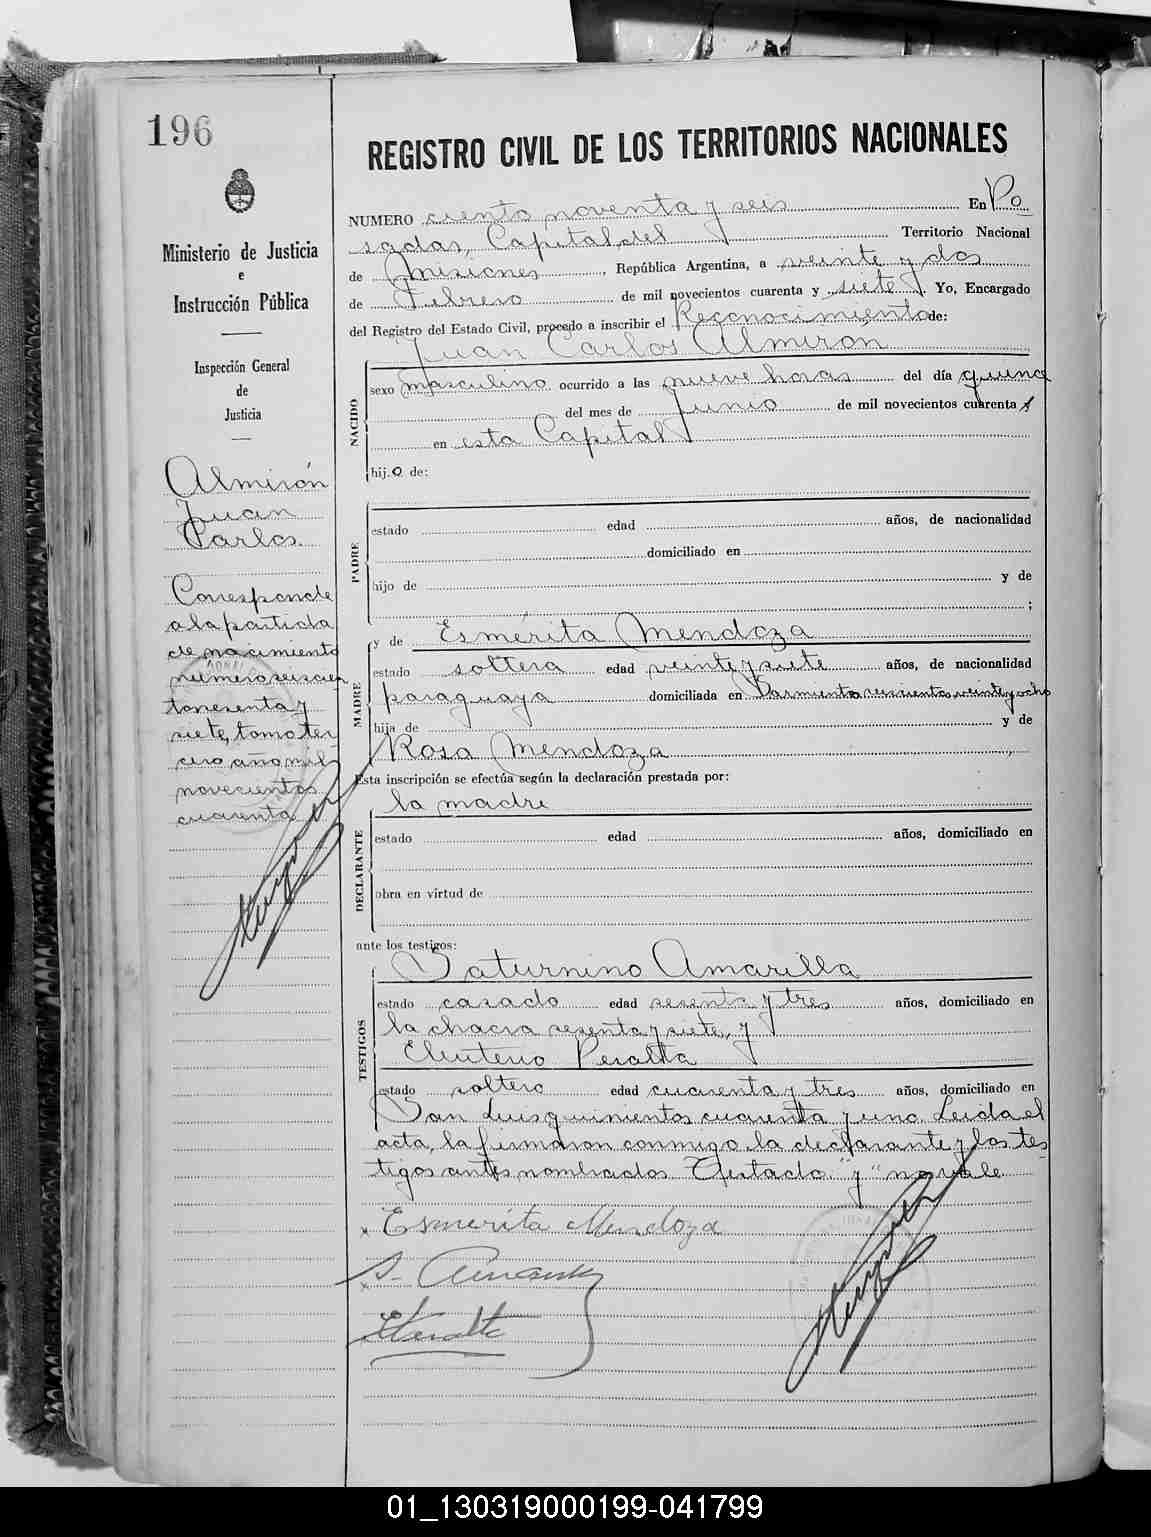 196
Ministerio de Justicia
e
Instrucción Pública
Inspección General
de
Justicia
Almirón
Juan
Carlos.
Corresponde
a la partida
de nacimiento
número seiscien
tos
siete, tomo ter
cero año mil
novecientos
cuarenta
REGISTRO CIVIL DE LOS TERRITORIOS NACIONALES
NUMERO ciento noventa y seis En Po
sadas, Capital del Territorio Nacional
de Misiones, República Argentina, a veinte y dos
de Febrero de mil novecientos cuarenta y siete. Yo, Encargado
del Registro del Estado Civil, procedo a inscribir el Reconocimiento de:
Juan Carlos Almiron
NACIDO
sexo masculino ocurrido a las nueve horas del día quince
del mes de Junio de mil novecientos cuarenta y
en esta Capital
hijo de:
PADRE
estado edad años, de nacionalidad
domiciliado en
hijo de y de
;
y de Esmérita Mendoza
MADRE
estado soltera edad veinte y siete años, de nacionalidad
paraguaya domiciliada en Sarmiento seiscientos veinte y ocho
hija de y de
Rosa Mendoza
Esta inscripción se efectúa según la declaración prestada por:
la madre
DECLARANTE
estado edad años, domiciliado en
obra en virtud de
ante los testigos:
Saturnino Amarilla
TESTIGOS
estado casado edad sesenta y tres años, domiciliado en
la chacra sesenta y siete, y
Eleuterio Peralta
estado soltero edad cuarenta y tres años, domiciliado en
San Luis quinientos cuarenta y uno. Leida el
acta, la firmaron conmigo la declarante y los tes
tigos antes nombrados. Testado: "y" no vale
x Esmerita Mendoza
x S. Amarilla
EPeralta
01_130319000199-041799